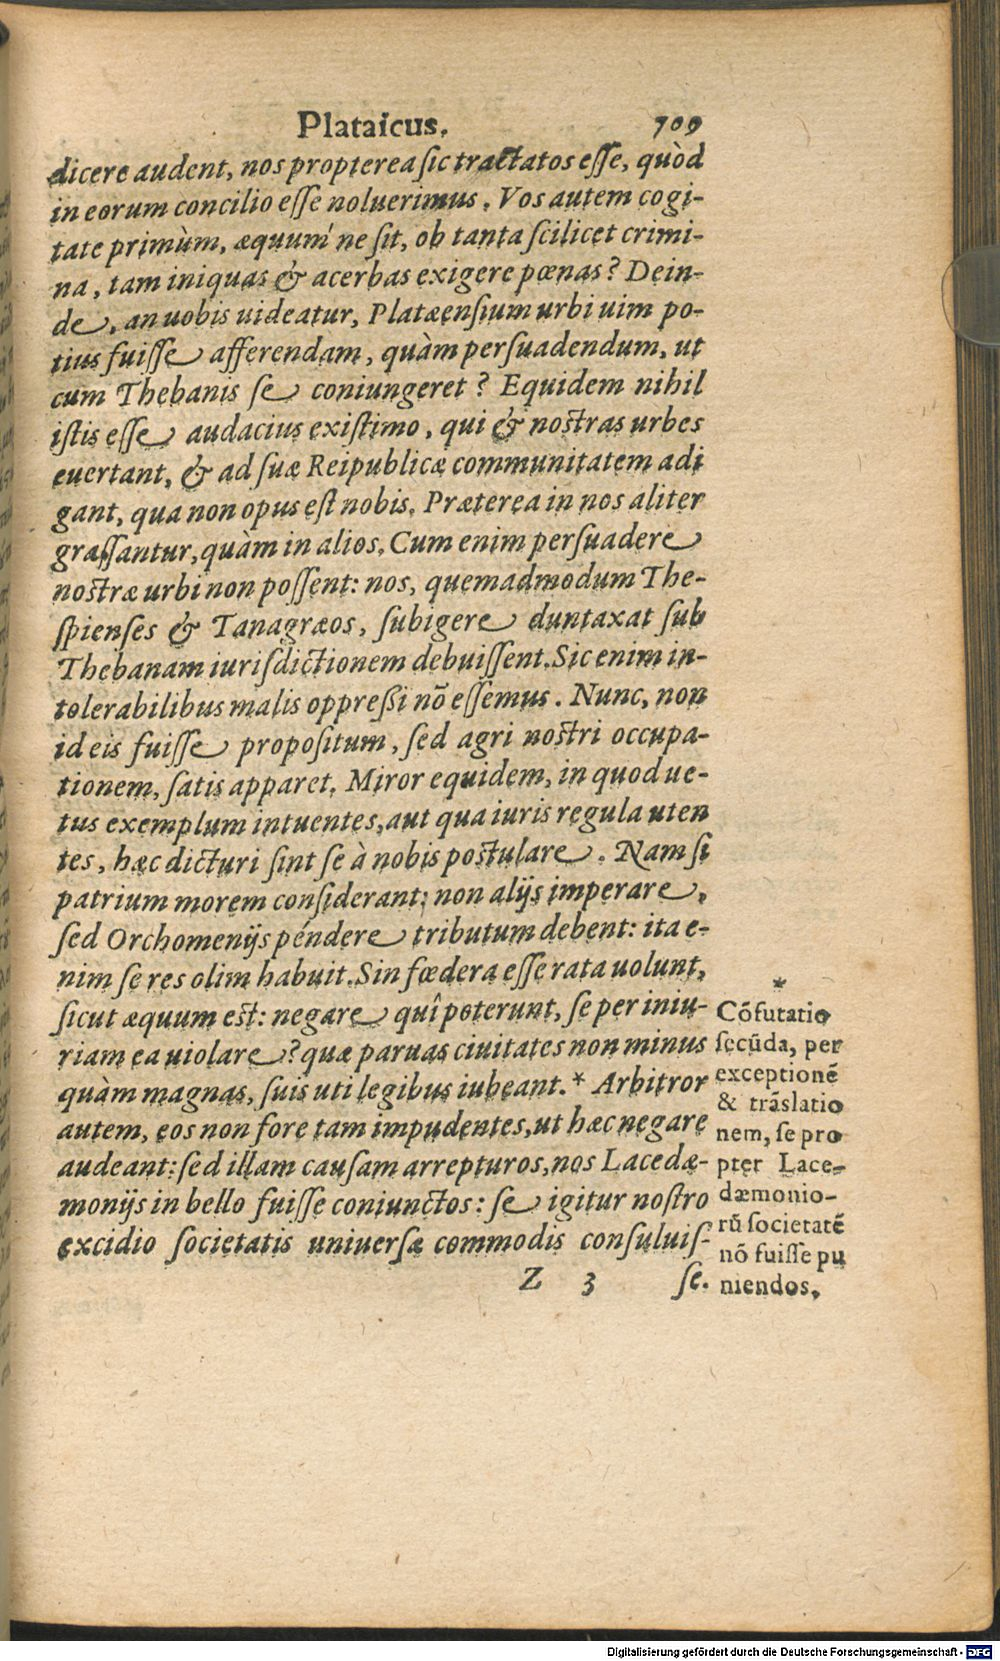 Plataicus. 709
dicere audent, nos propterea sic tractatos esse, quòd
in eorum concilio esse noluerimus. Vos autem cogi-
tate primùm, æquum' ne sit, ob tanta scilicet crimi-
na, tam iniquas & acerbas exigere pœnas? Dein-
de, an uobis uideatur, Platæensium urbi uim po-
tius fuisse afferendam, quàm persuadendum, ut
cum Thebanis se coniungeret? Equidem nihil
istis esse audacius existimo, qui & nostras urbes
euertant, & ad suæ Reipublicæ communitatem adi
gant, qua non opus est nobis. Præterea in nos aliter
grassantur, quàm in alios. Cum enim persuadere
nostræ urbi non possent: nos, quemadmodum The-
spienses & Tanagræos, subigere duntaxat sub
Thebanam iurisdictionem debuissent. Sic enim in-
tolerabilibus malis oppreßi nõ essemus. Nunc, non
id eis fuisse propositum, sed agri nostri occupa-
tionem, satis apparet. Miror equidem, in quod ue-
tus exemplum intuentes, aut qua iuris regula uten
tes, hæc dicturi sint se à nobis postulare. Nam si
patrium morem considerant; non alijs imperare,
sed Orchomenijs péndere tributum debent: ita e-
nim se res olim habuit. Sin fœdera esse rata uolunt,
sicut æquum est: negare quî poterunt, se per iniu-
riam ea uiolare? quæ paruas ciuitates non minus
quàm magnas, suis uti legibus iubeant.* Arbitror
autem, eos non fore tam impudentes, ut hæc negare
audeant: sed illam causam arrepturos, nos Lacedæ-
monijs in bello fuisse coniunctos: se igitur nostro
excidio societatis uniuersæ commodis consuluis-
Z 3 se.
*
Cõfutatio
secũda, per
exceptionẽ
& trãslatio
nem, se pro
pter Lace-
dæmonio-
rũ societatẽ
nõ fuisse pu
niendos.
Digitalisierung gefördert durch die Deutsche Forschungsgemeinschaft - DFG